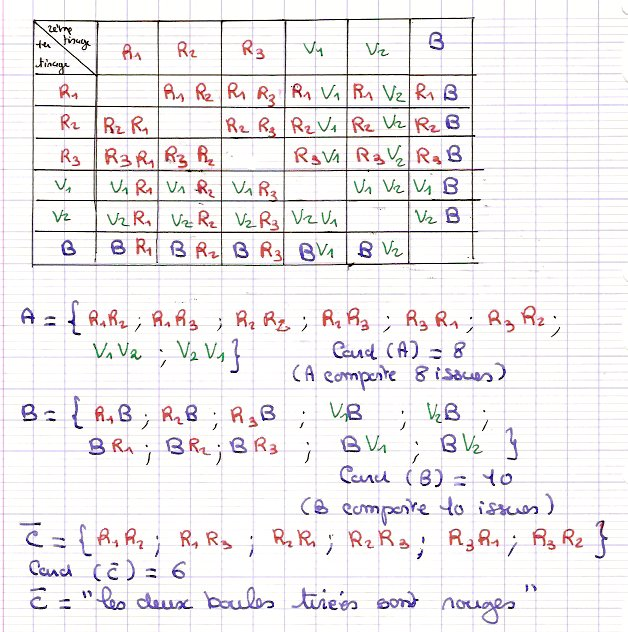 2ème tirage R1 R2 R3 V1 V2 B
1er tirage
R1 R1 R2 R1 R3 R1 V1 R1 V2 R1 B
R2 R2 R1 R2 R3 R2 V1 R2 V2 R2 B
R3 R3 R1 R3 R2 R3 V1 R3 V2 R3 B
V1 V1 R1 V1 R2 V1 R3 V1 V2 V1 B
V2 V2 R1 V2 R2 V2 R3 V2 V1 V2 B
B B R1 B R2 B R3 B V1 B V2
A = { R1R2 ; R1R3 ; R2 R2 ; R2 R3 ; R3 R1 ; R3 R2 ;
V1 V2 ; V2 V1 } Card (A) = 8
(A comporte 8 issues)
B = { R1B ; R2B ; R3B ; V1B ; V2B ;
B R1 ; B R2 ; B R3 ; B V1 ; B V2 }
Card (B) = 10
(B comporte 10 issues)
C̅ = { R1 R2 ; R1 R3 ; R2 R1 ; R2 R3 ; R3 R1 ; R3 R2 }
Card (C̅) = 6
C̅ = "les deux boules tirées sont rouges"